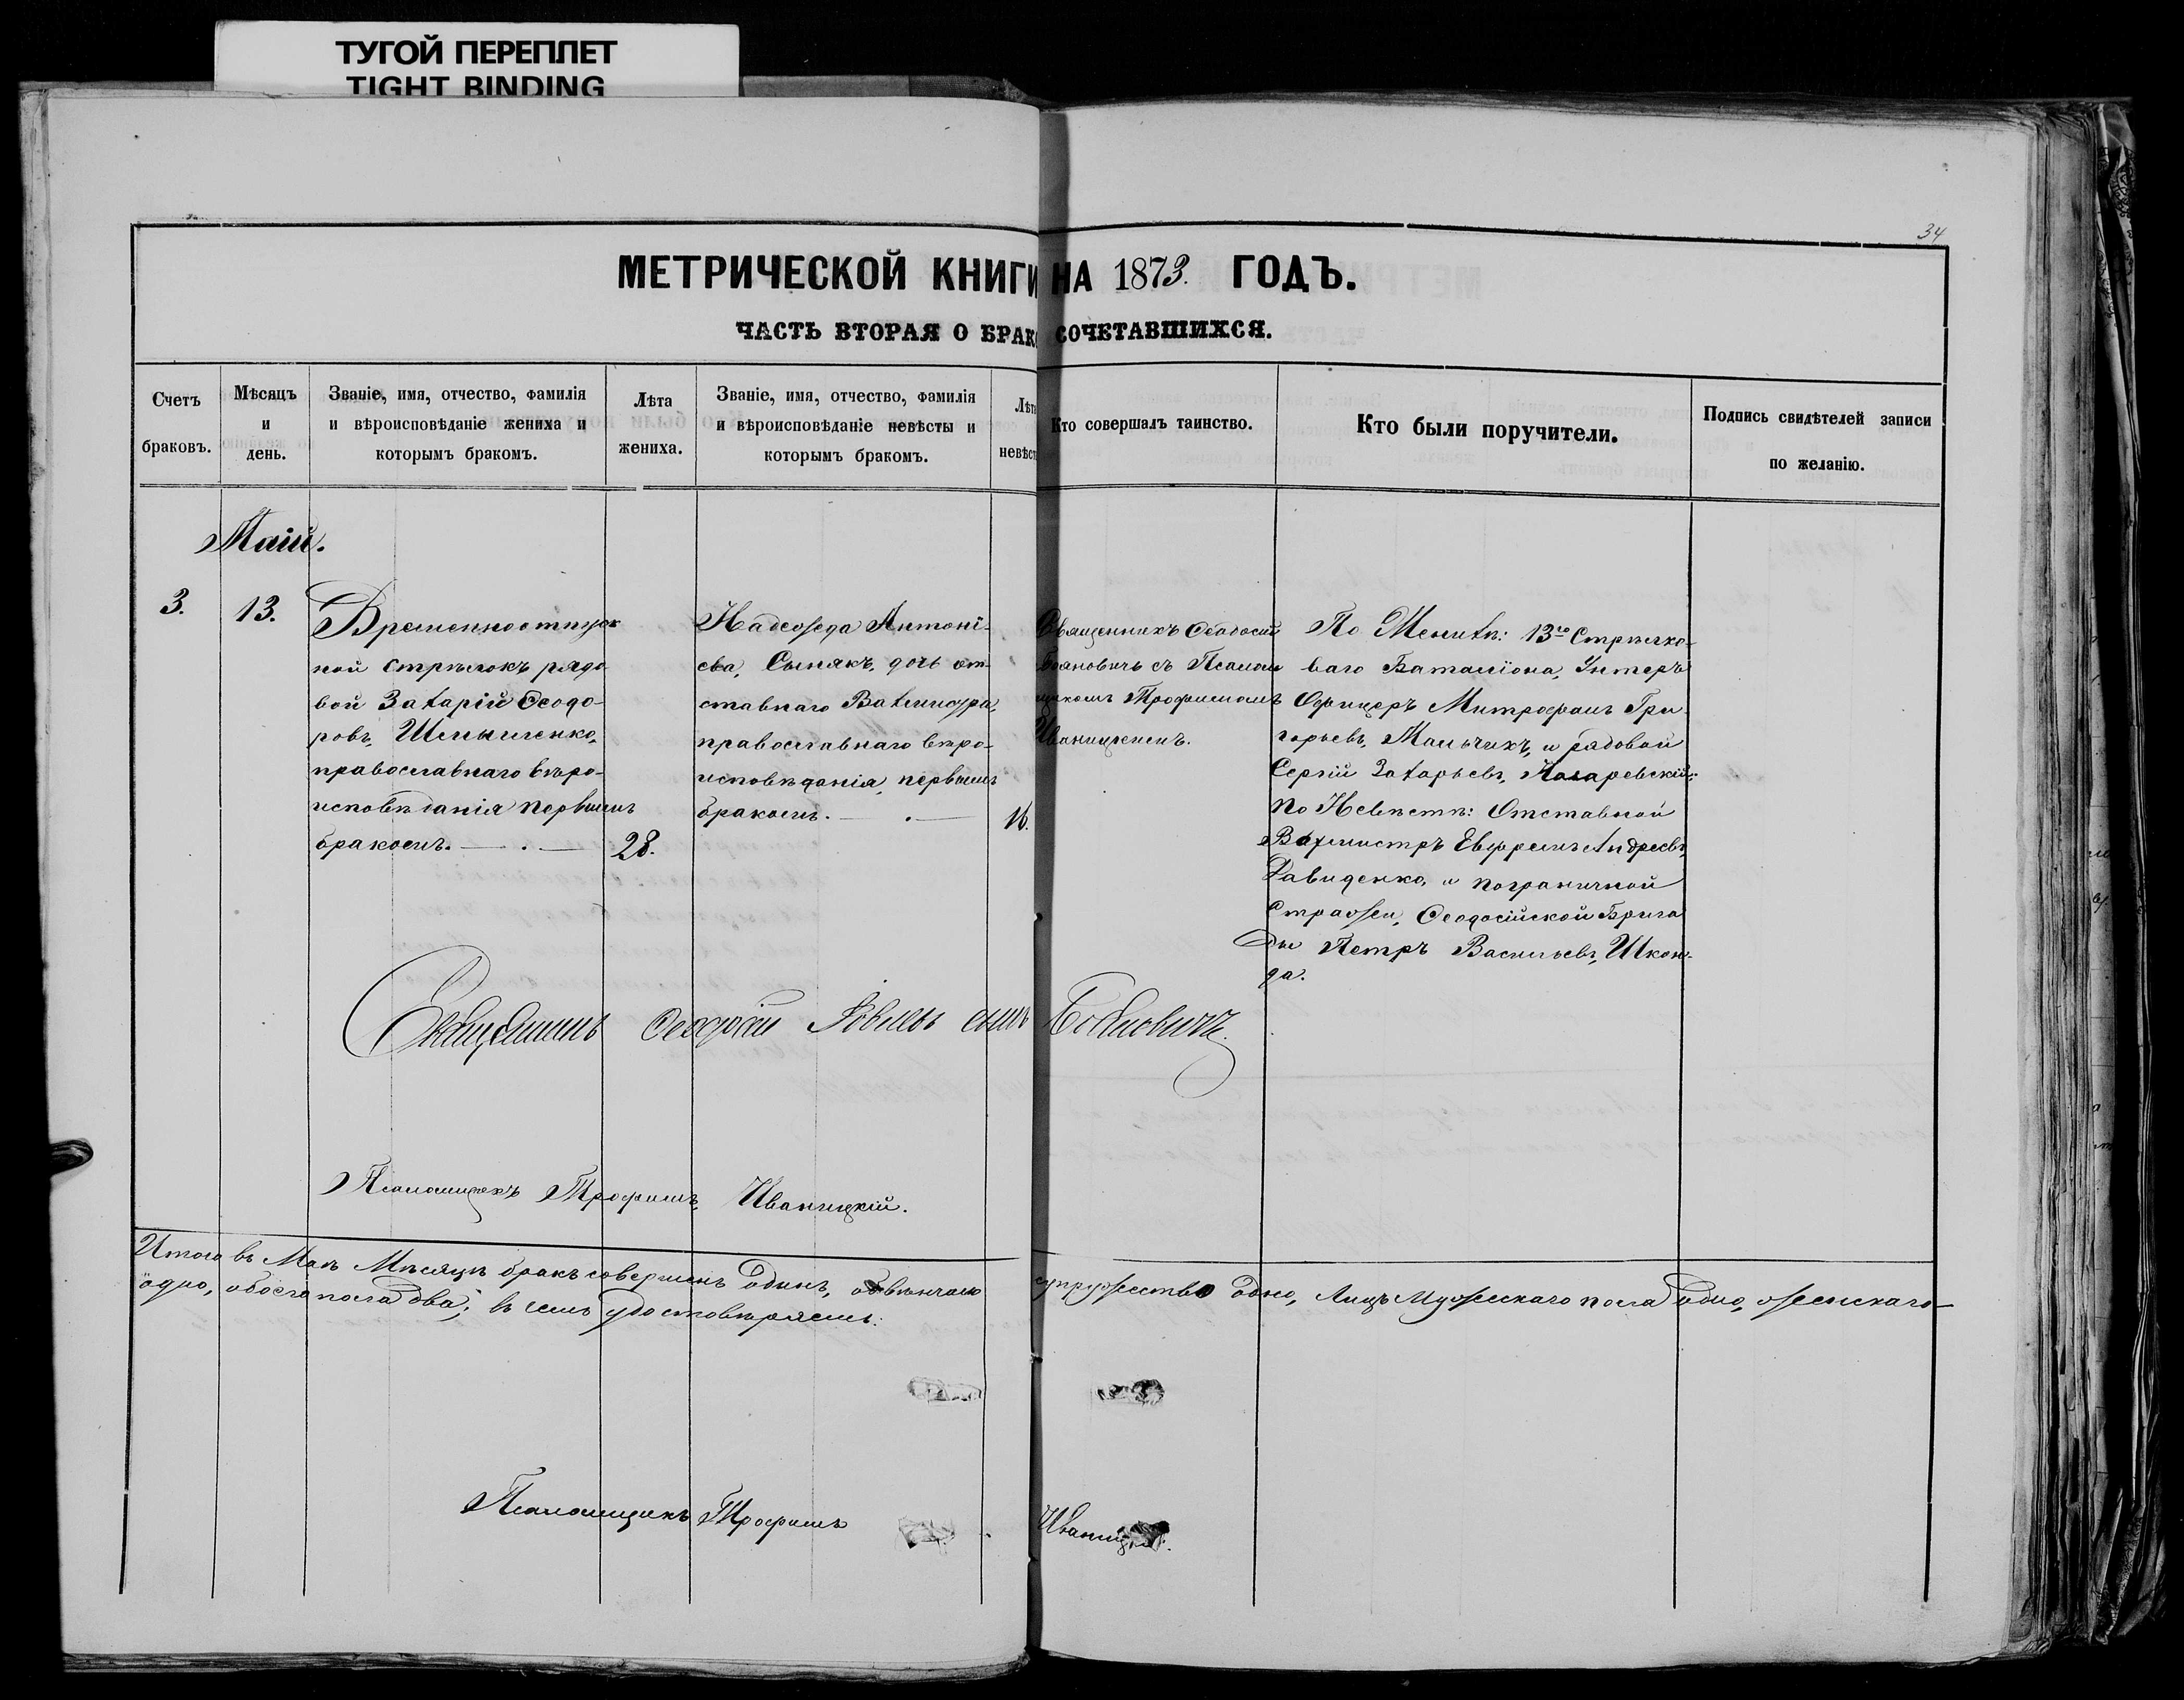 ТУГОЙ ПЕРЕПЛЕТ
TIGHT BINDING
34
МЕТРИЧЕСКОЙ КНИГИ НА 1873. ГОДЪ.
ЧАСТЬ ВТОРАЯ О БРАКОСОЧЕТАВШИХСЯ.
Счетъ
браковъ.
Мѣсяцъ
и
день.
Званіе, имя, отчество, фамилія
и вѣроисповѣданіе жениха и
которымъ бракомъ.
Лѣта
жениха.
Званіе, имя, отчество, фамилія
и вѣроисповѣданіе невѣсты и
которымъ бракомъ.
Лѣта
невѣст
Кто совершалъ таинство.
Кто были поручители.
Подпись свидѣтелей записи
по желанію.
Маій.
3.
13.
Временноотпуск
ной стрѣлокъ рядо
вой Захарій Ѳеодо-
ровъ,
православнаго вѣро-
исповѣданія первымъ
бракомъ.
28.
Надежда Антоні-
ева, Сынякъ, дочь от-
ставнаго Вахмистра,
православнаго вѣро-
исповѣданія, первымъ
бракомъ.
16.
Священникъ Ѳеодосій
Бояновичъ съ Псалом
щикомъ Трофимомъ
Иваницкимъ.
По Женихѣ: 13го Стрѣлко-
ваго Баталіона, Унтеръ
Офицеръ Митрофанъ Гри-
горьевъ, Мальчикъ, и рядовой
Сергій Захарьевъ,
по Невѣстѣ: Отставной
Вахмистръ Евфремъ Андреевъ,
Давиденко, и пограничной
Стражи, Ѳеодосійской Брига
ды Петръ Васильевъ, Шкон-
да.
Священникъ Ѳеодосій сынъ Бояновичъ.
Псаломщикъ Трофимъ, Иваницкій.
Итого въ Маѣ Мѣсяцѣ бракъ совершенъ одинъ, обвѣнчано супружество одно, Лицъ Мужескаго пола одно, женскаго
одно, обоего пола два; въ чемъ удостовѣряемъ:
Псаломщикъ Трофимъ Иваницкій.